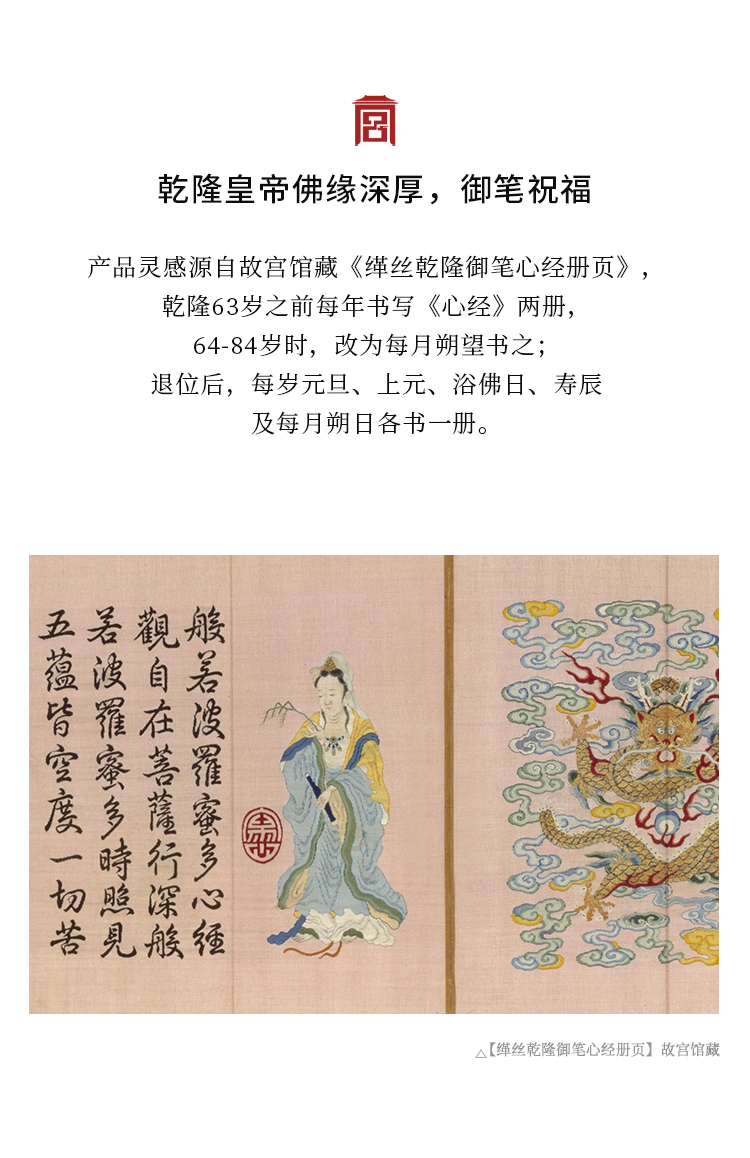 乾隆皇帝佛缘深厚，御笔祝福
产品灵感源自故宫馆藏《缂丝乾隆御笔心经册页》，
乾隆63岁之前每年书写《心经》两册，
64-84岁时，改为每月朔望书之；
退位后，每岁元旦、上元、浴佛日、寿辰
及每月朔日各书一册。
般若波羅蜜多心經
觀自在菩薩行深般
若波羅蜜多時照見
五蘊皆空度一切苦
△【缂丝乾隆御笔心经册页】故宫馆藏